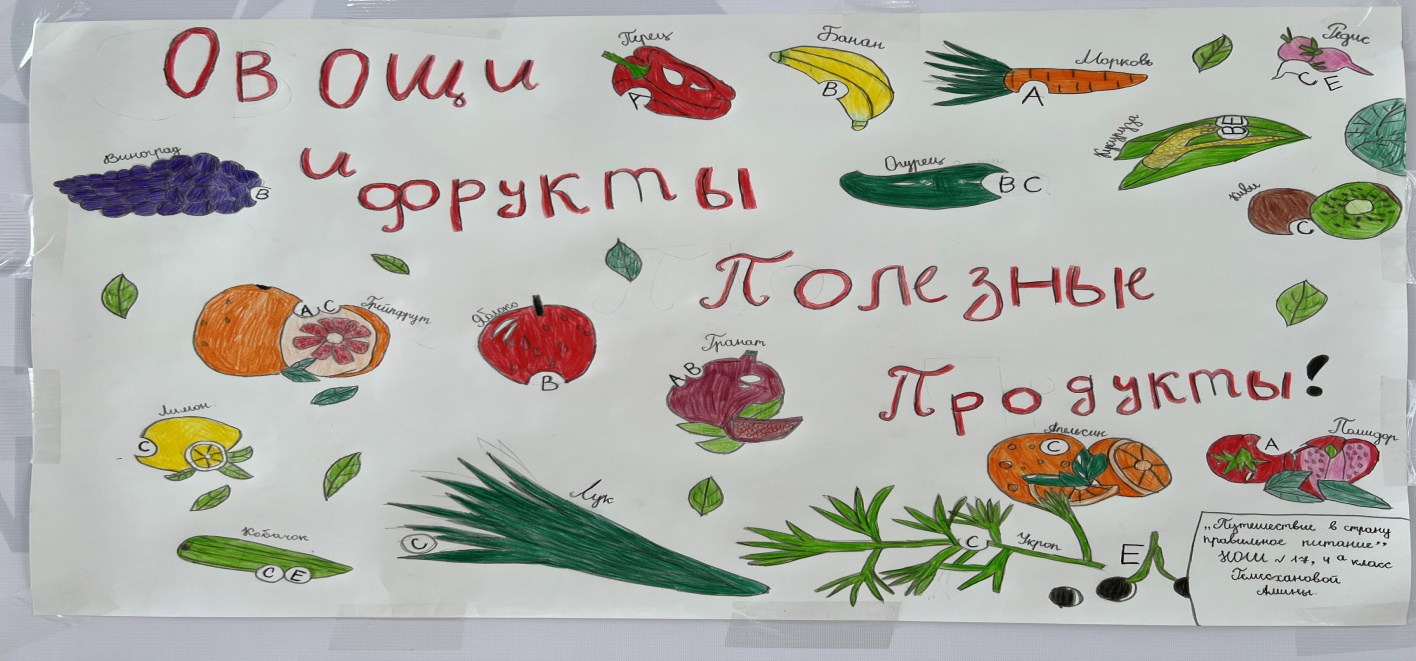 Овощи
и фрукты
Полезные
Продукты!
Перец
А
Банан
В
Морковь
А
Редис
С Е
Виноград
В
Огурец
В С
Кукуруза
ВЕ
Киви
С
Грейпфрут
А С
Яблоко
В
Гранат
А В
Лимон
С
Апельсин
С
Помидор
А
Кабачок
С Е
Лук
С
Укроп
С
Е
„Путешествие в страну
правильное питание”
НОШ №17, 4 а класс
Гемехановой
Амины.